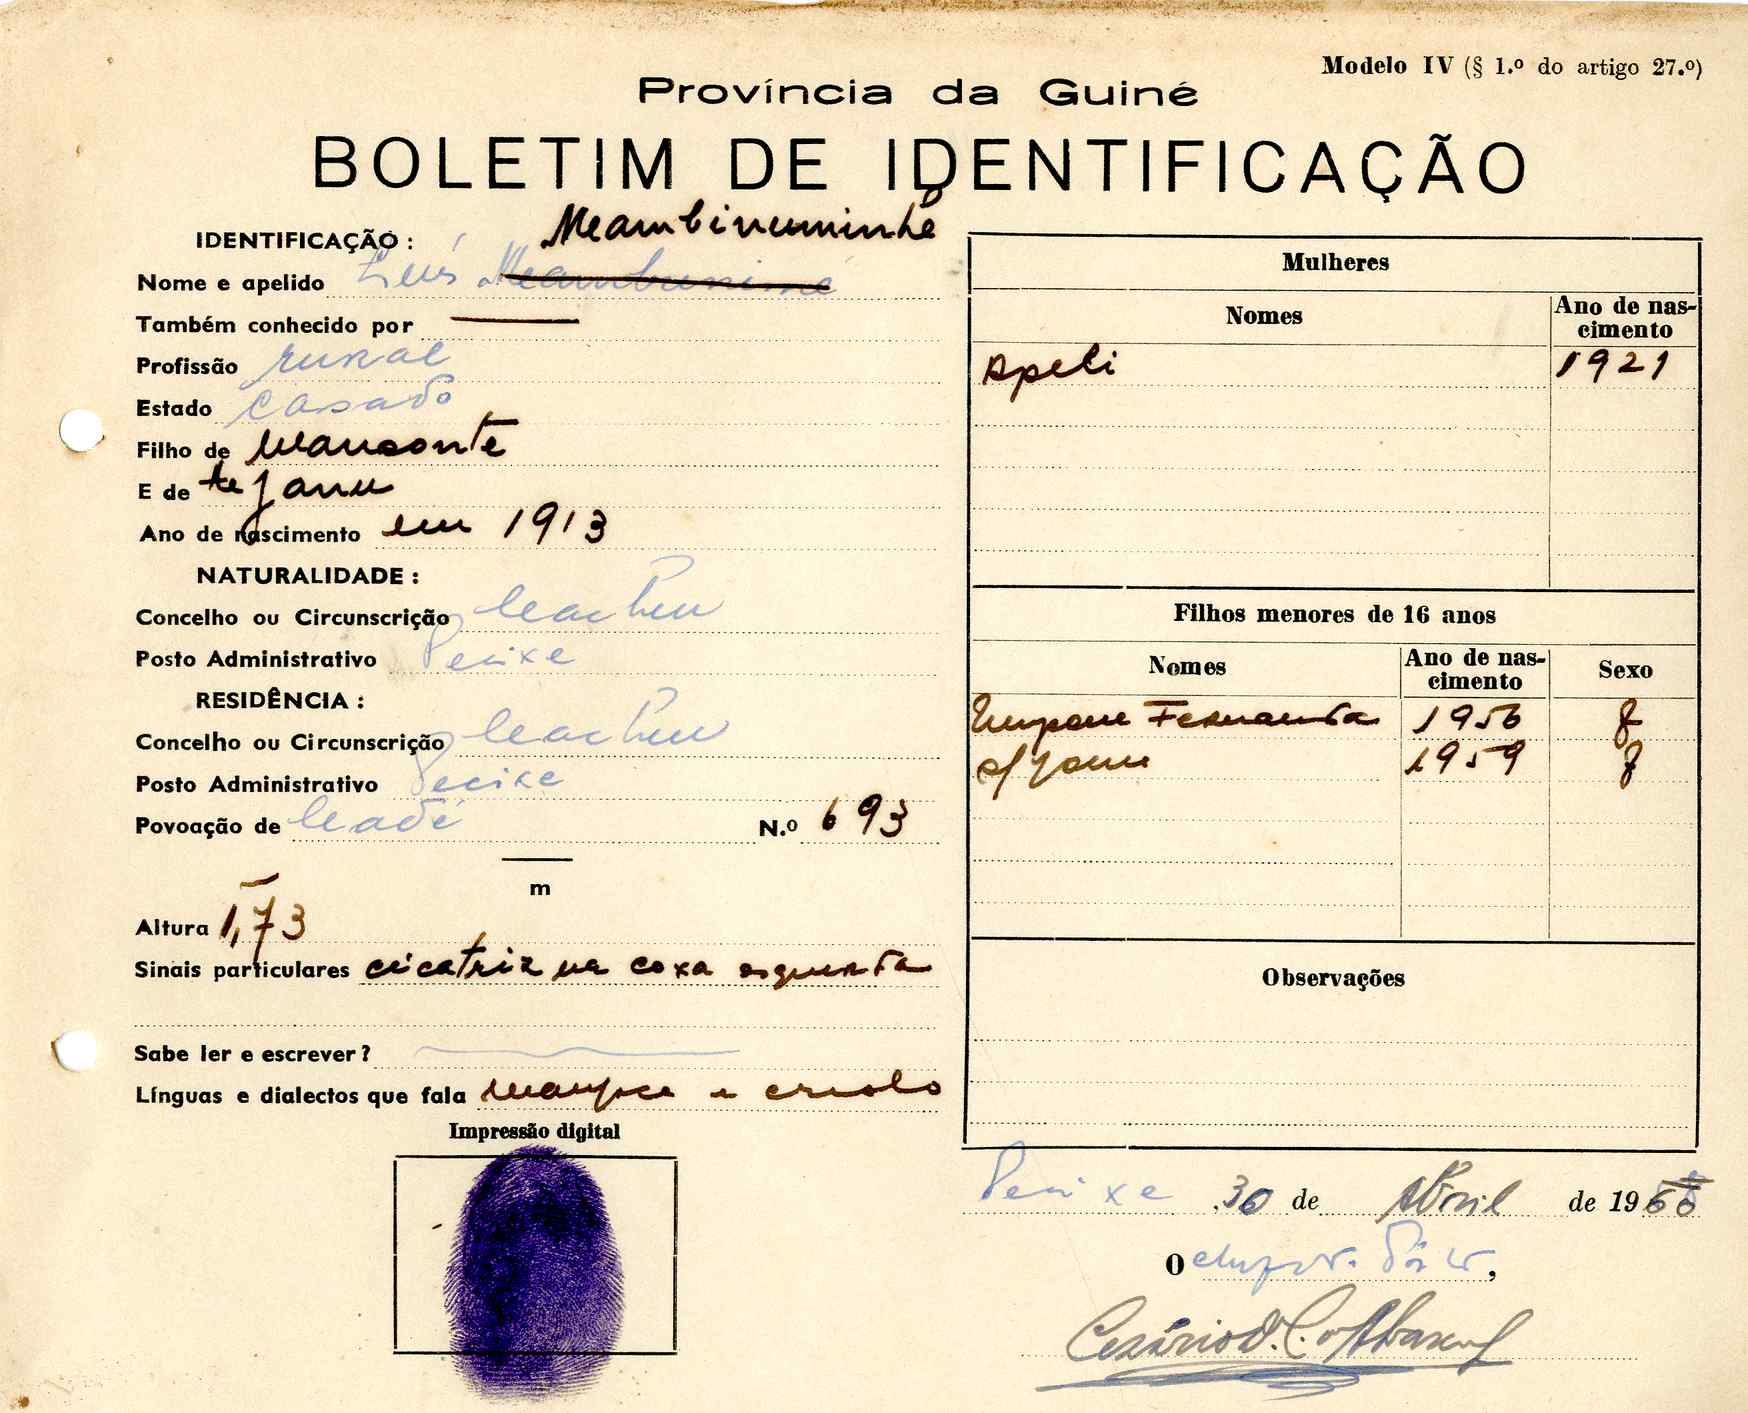 Modelo IV (§ 1.º do artigo 27.º)
Província da Guiné
BOLETIM DE IDENTIFICAÇÃO
IDENTIFICAÇÃO:
Nome e apelido Luís
Também conhecido por
Profissão rural
Estado casado
Filho de
E de
Ano de nascimento em 1913
NATURALIDADE:
Concelho ou Circunscrição Cacheu
Posto Administrativo Pecixe
RESIDÊNCIA:
Concelho ou Circunscrição Cacheu
Posto Administrativo Pecixe
Povoação de N.º 693
m
Altura 1,73
Sinais particulares cicatriz na coxa esquerda
Sabe ler e escrever?
Línguas e dialectos que fala e criolo
Impressão digital
Mulheres
Nomes Ano de nas-
cimento
Apeli 1921
Filhos menores de 16 anos
Nomes Ano de nas-
cimento Sexo
Fernanda 1956 f
1959 f
Observações
Pecixe 30 de Abril de 196
O